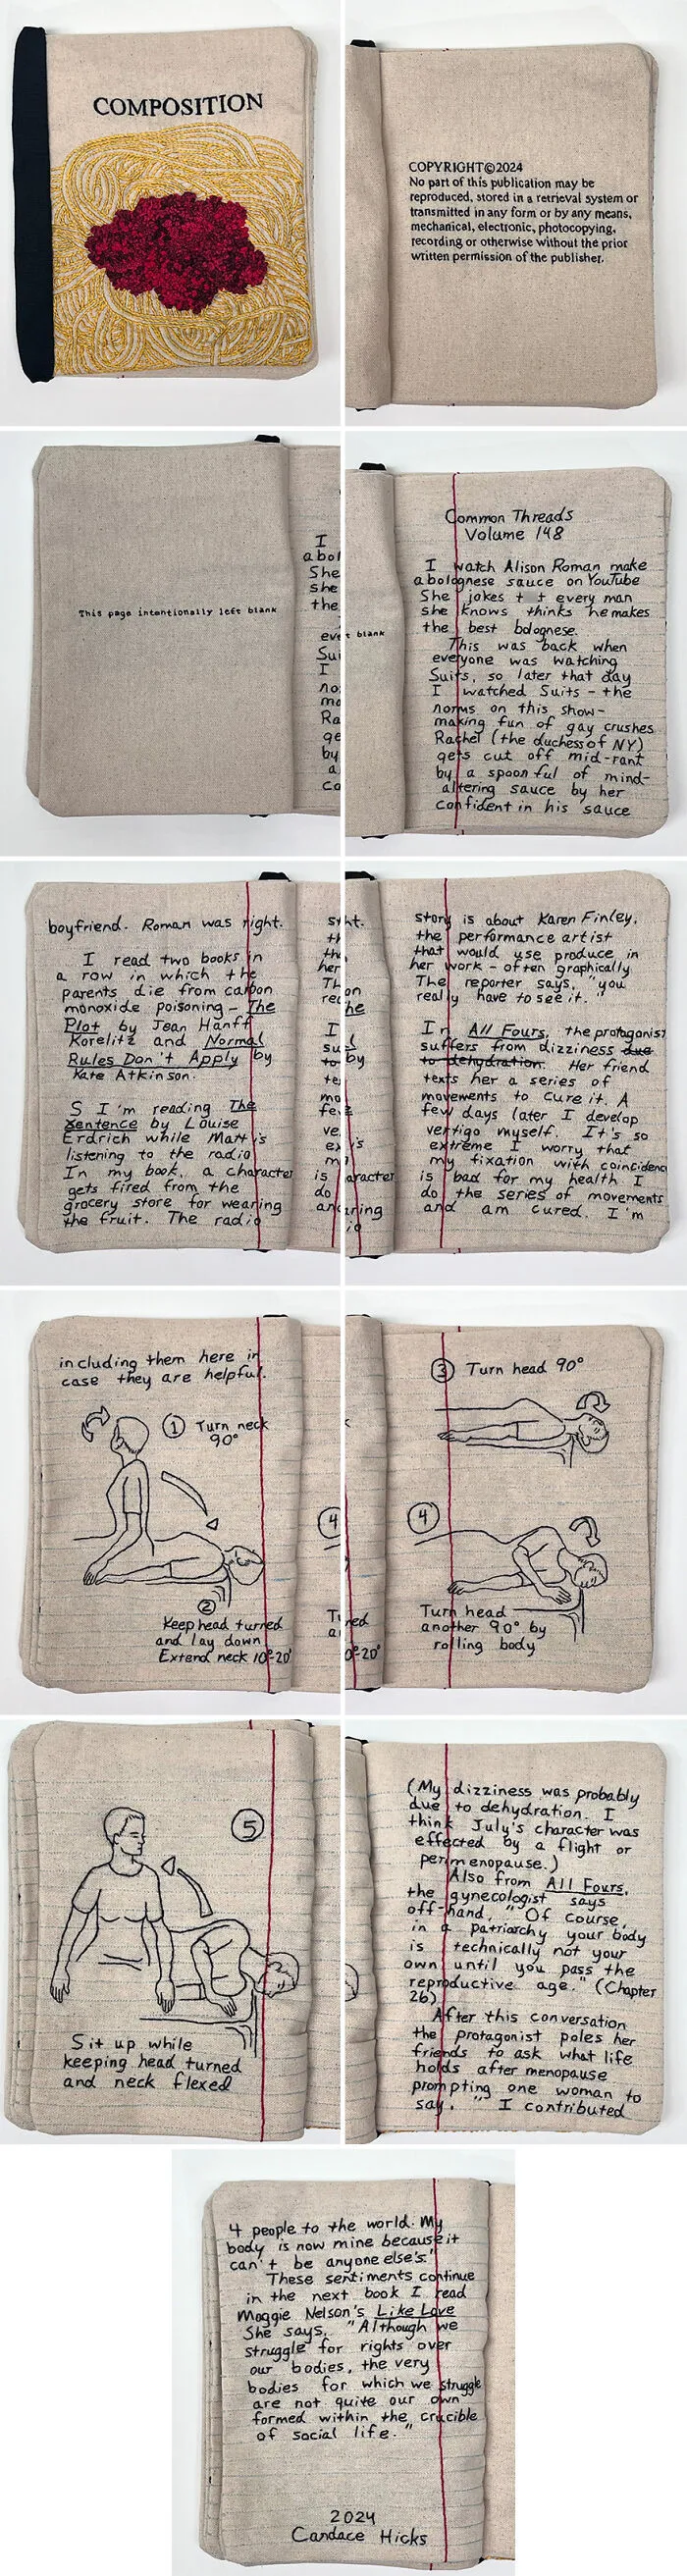 COMPOSITION
COPYRIGHT©2024
No part of this publication may be
reproduced, stored in a retrieval system or
transmitted in any form or by any means,
mechanical, electronic, photocopying,
recording or otherwise without the prior
written permission of the publisher.
This page intentionally left blank
I
abol
She
she
the
eve
Sui
I
no
ma
Ra
ge
by
a
co
t blank
Common Threads
Volume 148
I watch Alison Roman make
a bolognese sauce on YouTube
She jokes t t every man
she knows thinks he makes
the best bolognese.
This was back when
everyone was watching
Suits, so later that day
I watched Suits - the
norms on this show-
making fun of gay crushes
Rachel (the duchess of NY)
gets cut off mid-rant
by a spoonful of mind-
altering sauce by her
confident in his sauce
boyfriend. Roman was right.
I read two books in
a row in which the
parents die from carbon
monoxide poisoning - The
Plot by Jean Hanff
Korelitz and Normal
Rules Don't Apply by
Kate Atkinson.
S I'm reading The
Sentence by Louise
Erdrich while Matt is
listening to the radio
In my book, a character
gets fired from the
grocery store for wearing
the fruit. The radio
story is about Karen Finley,
the performance artist
that would use produce in
her work - often graphically
The reporter says, "you
really have to see it."
In All Fours, the protagonist
suffers from dizziness due
to dehydration. Her friend
texts her a series of
movements to cure it. A
few days later I develop
vertigo myself. It's so
extreme I worry that
my fixation with coincidenc
is bad for my health I
do the series of movements
and am cured. I'm
including them here in
case they are helpful.
1 Turn neck
90°
2
Keep head turned
and lay down
Extend neck 10°-20°
3 Turn head 90°
4
Turn head
another 90° by
rolling body
5
Sit up while
keeping head turned
and neck flexed
(My dizziness was probably
due to dehydration. I
think July's character was
effected by a flight or
perimenopause.)
Also from All Fours,
the gynecologist says
off-hand, "Of course,
in a patriarchy your body
is technically not your
own until you pass the
reproductive age." (Chapter
26)
After this conversation
the protagonist poles her
friends to ask what life
holds after menopause
prompting one woman to
say, "I contributed
4 people to the world. My
body is now mine because it
can't be anyone else's."
These sentiments continue
in the next book I read
Maggie Nelson's Like Love
She says, "Although we
struggle for rights over
our bodies, the very
bodies for which we struggle
are not quite our own
formed within the crucible
of social life."
2024
Candace Hicks